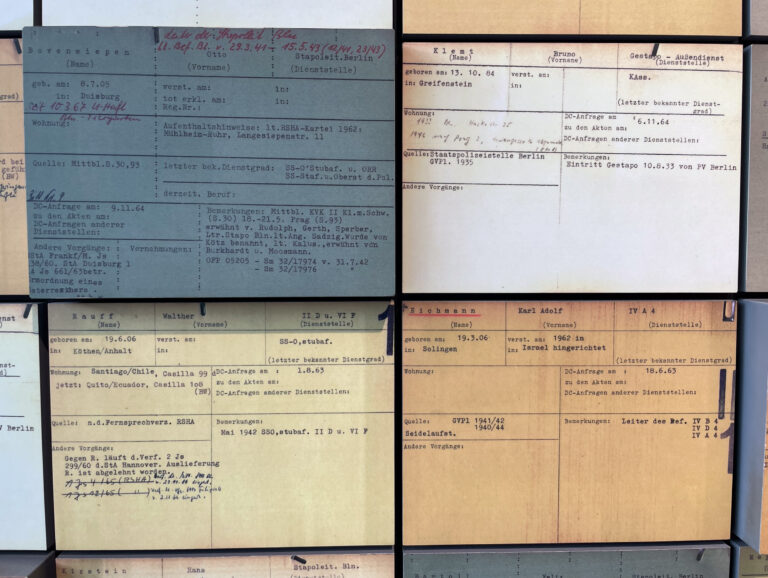 Bovensiepen Otto Stapoleit.Berlin
(Name) (Vorname) (Dienststelle)
geb. am: 8.7.05 verst. am: in:
in: Duisburg tot erkl. am: in:
Reg.Nr.:
Wohnung: Aufenthaltshinweise: lt.RSHA-Kartei 1962:
Mühlheim-Ruhr, Langensiepenstr. 11
Quelle: Mittbl.B.30,93 letzter bek.Dienstgrad: SS-O'Stubaf. u. ORR
SS-Staf.u.Oberst d.Pol.
derzeit. Beruf:
DC-Anfrage am: 9.11.64
zu den Akten am:
DC-Anfragen anderer
Dienststellen:
Bemerkungen: Mittbl. KVK II Kl.m.Schw.
(S.30) 18.-21.5. Prag (S.93)
erwähnt v. Rudolph, Gerth, Sperber,
Ltr.Stapo Bln.lt.Ang. Sadzig.Wurde von
Kötz benannt, lt. Kalus.,erwähnt von
Burkhardt u. Moosmann.
OPP 05205 - Sm 32/17974 v. 31.7.42
- Sm 32/17976 "
Andere Vorgänge: Vernehmungen:
StA Frankf/M. Js
38/60. StA Duisburg 1
A Js 661/63betr.
rmordnung eines
sterreichers.
Klemt Bruno Gestapo - Außendienst
(Name) (Vorname) (Dienststelle)
geboren am: 13. 10. 84 verst. am: KAss.
in: Greifenstein in:
(letzter bekannter Dienst-
grad)
Wohnung:
DC-Anfrage am 6.11.64
zu den Akten am:
DC-Anfragen anderer Dienststellen:
Quelle:Staatspolizeistelle Berlin
GVPl. 1935
Bemerkungen:
Eintritt Gestapo 10.8.33 von PV Berlin
Andere Vorgänge:
Rauff Walther II D u. VI F
(Name) (Vorname) (Dienststelle)
geboren am: 19.6.06 verst. am: SS-O.stubaf.
in: Köthen/Anhalt in:
(letzter bekannter Dienstgrad)
Wohnung: Santiago/Chile, Casilla 99 d
jetzt: Quito/Ecuador, Casilla 108
(BW)
DC-Anfrage am : 1.8.63
zu den Akten am:
DC-Anfragen anderer Dienststellen:
Quelle: n.d.Fernsprechverz. RSHA
Bemerkungen:
Mai 1942 SSO.stubaf. II D u. VI F
Andere Vorgänge:
Gegen R. läuft d.Verf. 2 Js
299/60 d.StA Hannover. Auslieferung
R. ist abgelehnt worden.
Eichmann Karl Adolf IV A 4
(Name) (Vorname) (Dienststelle)
geboren am: 19.3.06 verst. am: 1962 in
in: Solingen in: Israel hingerichtet
(letzter bekannter Dienstgrad)
Wohnung:
DC-Anfrage am : 18.6.63
zu den Akten am:
DC-Anfragen anderer Dienststellen:
Quelle: GVPl 1941/42
1940/44
Seidelaufst.
Bemerkungen: Leiter des Ref. IV B 4
IV D 4
IV A 4
Andere Vorgänge:
PV Berlin
Kirstein Hans Stapoleit. Bln.